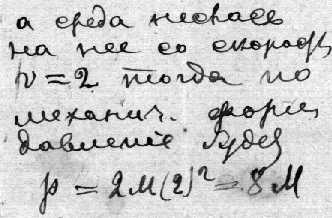 а среда неслась
на нее со скорость
v = 2 тогда по
механич. форм
давленiе будет
p = 2M(2)² = 8M